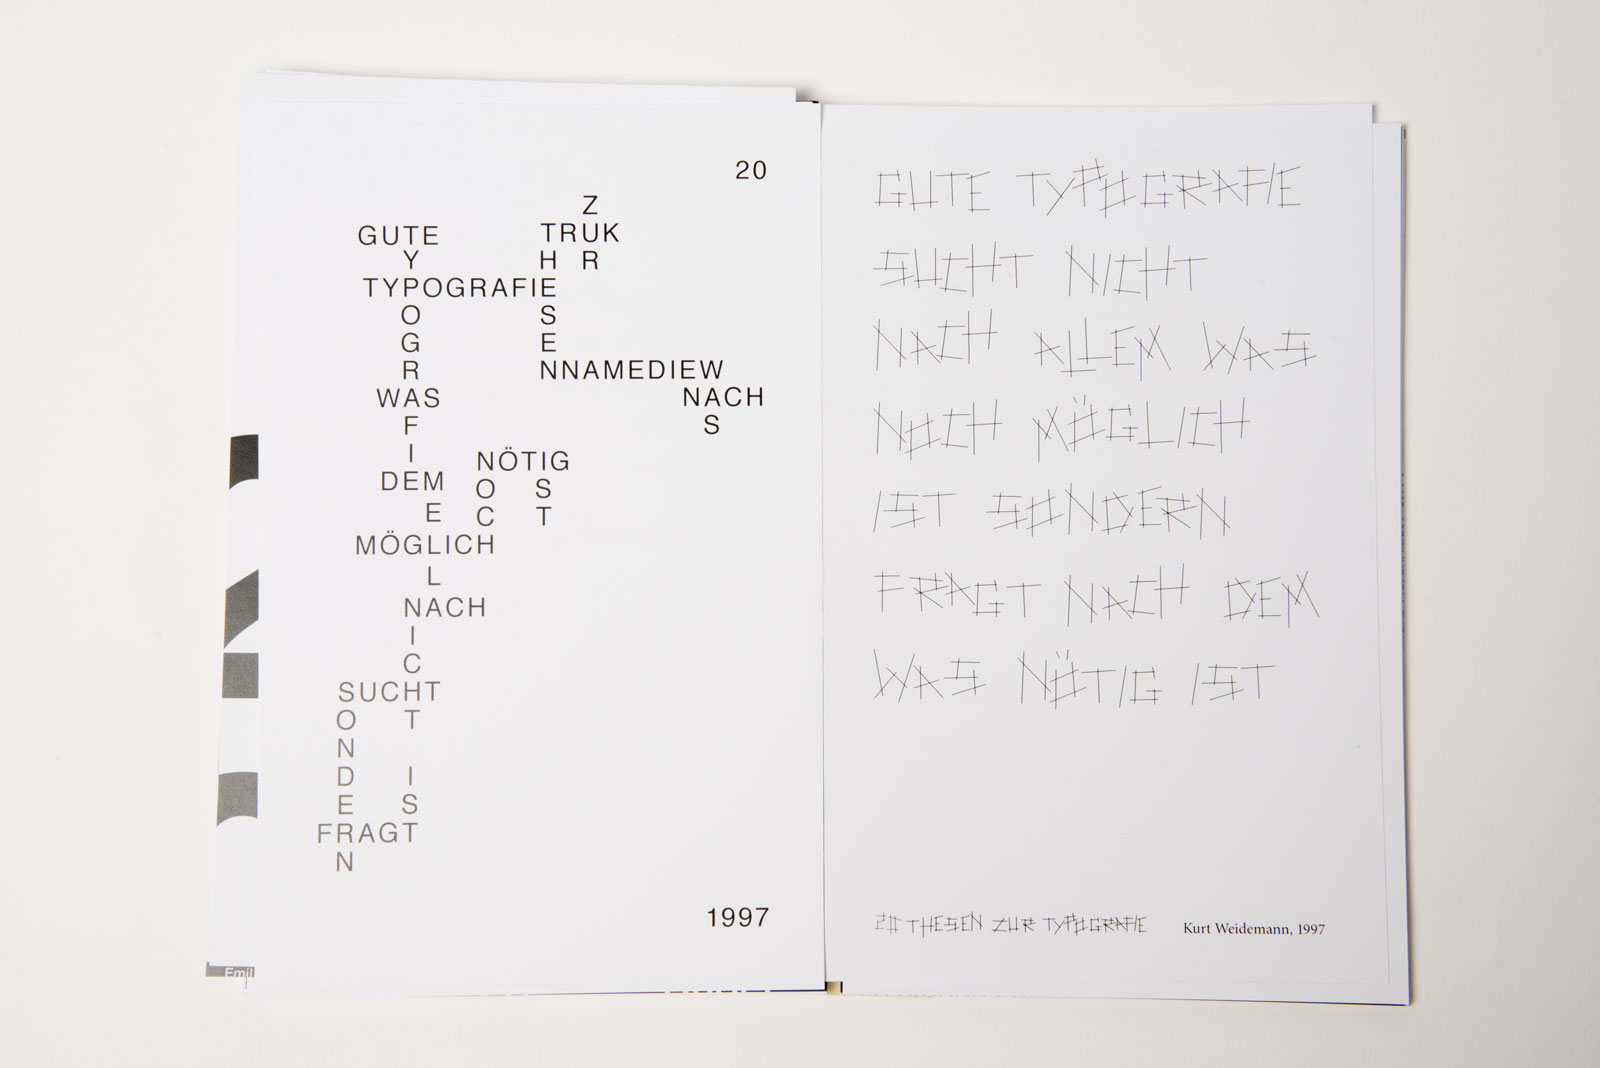 20
Z
GUTE TRUK
Y H R
TYPOGRAFIE
O S
G E
R NNAMEDIEW
WAS NACH
F S
I NÖTIG
DEM O S
E C T
MÖGLICH
L
NACH
I
C
SUCHT
O T
N
D I
E S
FRAGT
N
1997
Emil
GUTE TYPOGRAFIE
SUCHT NICHT
NACH ALLEM WAS
NOCH MÖGLICH
IST SONDERN
FRAGT NACH DEM
WAS NÖTIG IST
20 THESEN ZUR TYPOGRAFIE Kurt Weidemann, 1997